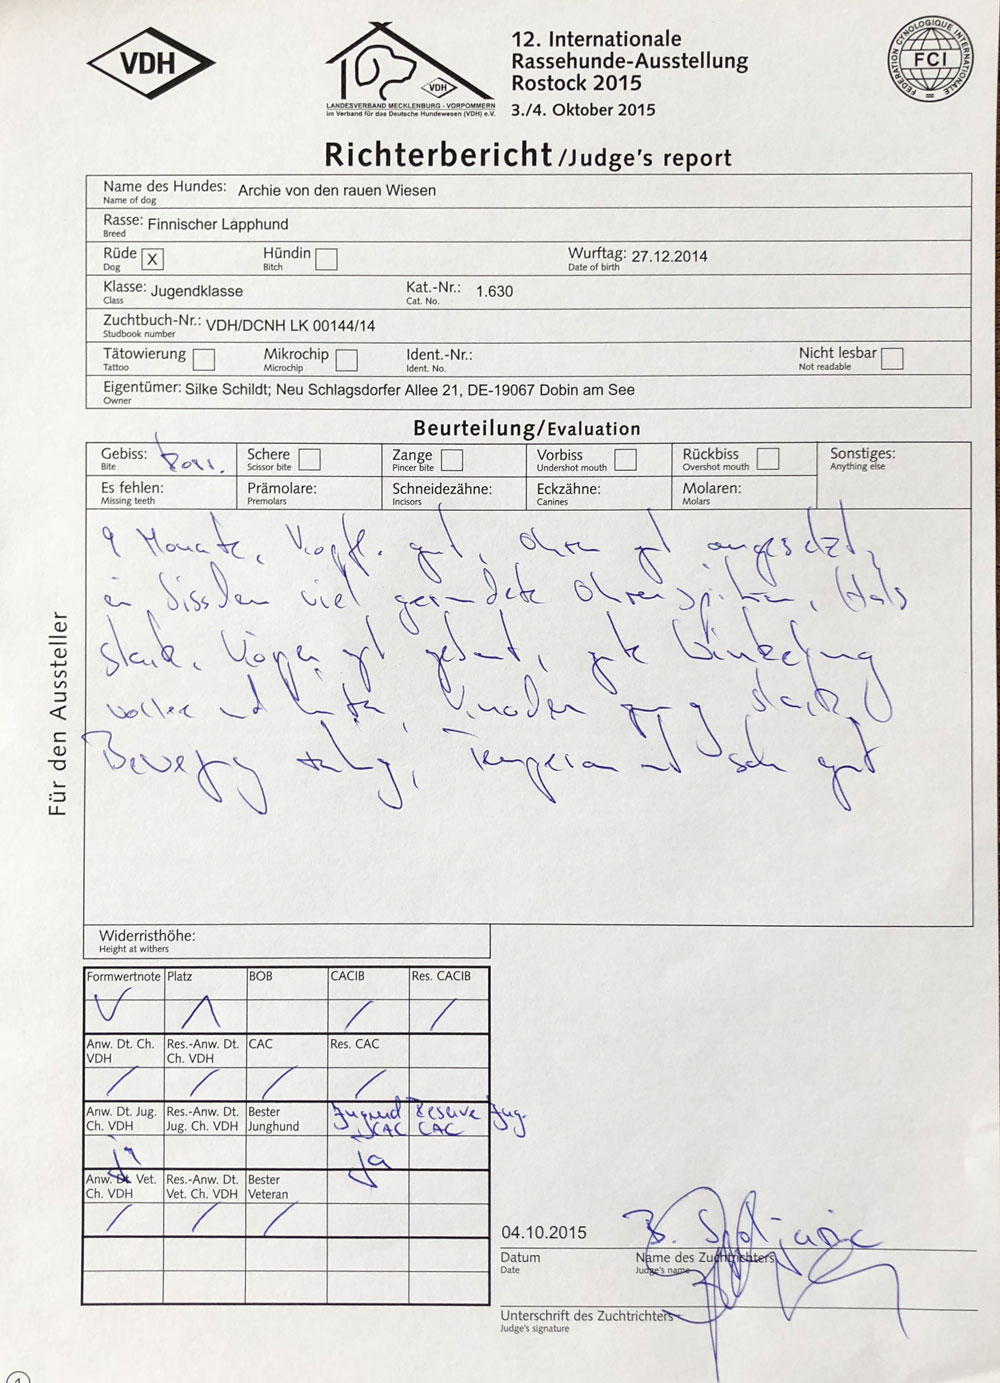 VDH
VDH
LANDESVERBAND MECKLENBURG - VORPOMMERN
im Verband für das Deutsche Hundewesen (VDH) e.V.
12. Internationale
Rassehunde-Ausstellung
Rostock 2015
3./4. Oktober 2015
FEDERATION CYNOLOGIQUE INTERNATIONALE
FCI
Richterbericht/Judge's report
Name des Hundes: Archie von den rauen Wiesen
Name of dog
Rasse: Finnischer Lapphund
Breed
Rüde X Hündin Wurftag: 27.12.2014
Dog Bitch Date of birth
Klasse: Jugendklasse Kat.-Nr.: 1.630
Class Cat. No.
Zuchtbuch-Nr.: VDH/DCNH LK 00144/14
Studbook number
Tätowierung Mikrochip Ident.-Nr.: Nicht lesbar
Tattoo Microchip Ident. No. Not readable
Eigentümer: Silke Schildt; Neu Schlagsdorfer Allee 21, DE-19067 Dobin am See
Owner
Beurteilung/Evaluation
Gebiss: korr. Schere Zange Vorbiss Rückbiss Sonstiges:
Bite Scissor bite Pincer bite Undershot mouth Overshot mouth Anything else
Es fehlen: Prämolare: Schneidezähne: Eckzähne: Molaren:
Missing teeth Premolars Incisors Canines Molars
9 Monate, Kopf gut, Ohren gut angesetzt,
ein bisschen viel gerundete Ohrenspitzen, Hals
stark, Körper gut gebaut, gute Winkelung
vorne und hinten, Knochen stark,
Bewegung Temperament sehr gut
Für den Aussteller
Widerristhöhe:
Height at withers
Formwertnote Platz BOB CACIB Res. CACIB
V 1 / /
Anw. Dt. Ch. VDH Res.-Anw. Dt. Ch. VDH CAC Res. CAC
/ / / /
Anw. Dt. Jug. Ch. VDH Res.-Anw. Dt. Jug. Ch. VDH Bester Junghund Jugend CAC Reserve Jug. CAC
ja ja
Anw. Dt. Vet. Ch. VDH Res.-Anw. Dt. Vet. Ch. VDH Bester Veteran
/ / /
04.10.2015
Datum Name des Zuchtrichters
Date Judge's name
Unterschrift des Zuchtrichters
Judge's signature
1